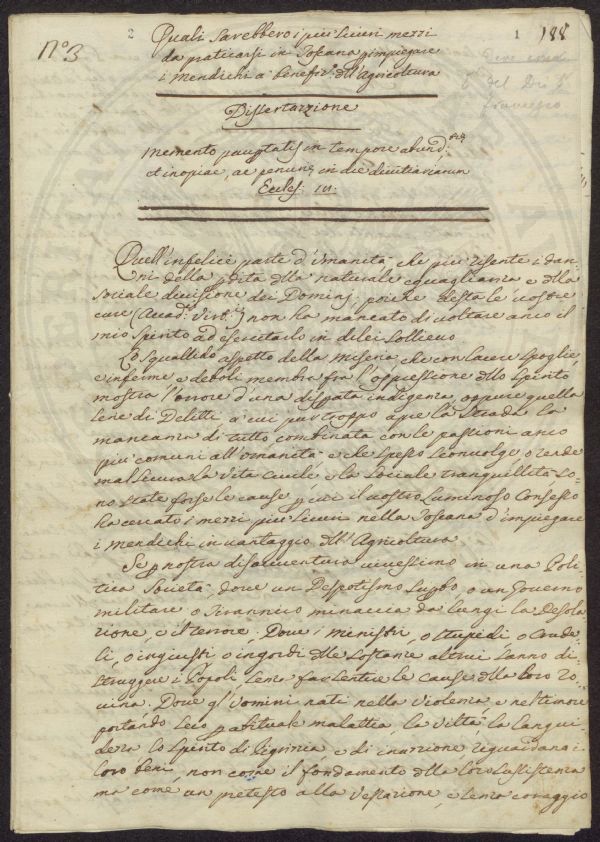 N° 3
2
1
188
Quali Sarebbero i più Sicuri mezzi
da praticarsi in Toscana p impiegare
i Mendichi a benefiz.° dell'Agricoltura
Dissertazione
Memento paup̄tatis in tempore abund:
et inopiae, ac penuriae in die divitiarum
Eccles: III:
Quell'infelice parte d'Umanità che più risente i dan-
ni della p̄dita della naturale eguaglianza e della
Sociale divisione dei Domini, poichè desta le vostre
cure (Accad:ci Virt:) non ha mancato di voltare anco il
mio Spirito ad esercitarlo in di lei Sollievo
Lo Squallido aspetto della Miseria che con lacere Spoglie,
e inferme e deboli membra fra l'oppressione dello Spirito
mostra l'orrore d'una disp̄ata indigenza, oppure quella
Serie di Delitti a cui pur troppo apre la Strada la
mancanza di tutto, combinata con le passioni anco
più comuni all'Umanità e che Spesso Sconvolge, o rende
mal Sicura la Vita Civile e la Sociale tranquillità So-
no state forse le cause p cui il vostro Luminoso Consesso
ha cercato i mezzi più Sicuri nella Toscana d'impiegare
i Mendichi in vantaggio dell'Agricoltura
Se p nostra disavventura vivessimo in una Poli-
tica Società dove un Despotismo o un Governo
militare o Tirannico minaccia da lungi la Desola
zione, e il terrore. Dove i Ministri, o Stupidi o Crude-
li, o ingiusti o ingordi delle Sostanze altrui Sanno di-
struggere i Popoli, Senza far Sentire le cause della loro ro-
vina. Dove gl'Uomini nati nella Violenza, e nel timore
portando Seco p abituale malattia, la viltà, la langui
dezza lo Spirito di pigrizia, e di inazione, riguardano i
loro beni, non come il fondamento della loro Sussistenza
ma come un pretesto alla Vessazione, e Senza coraggio